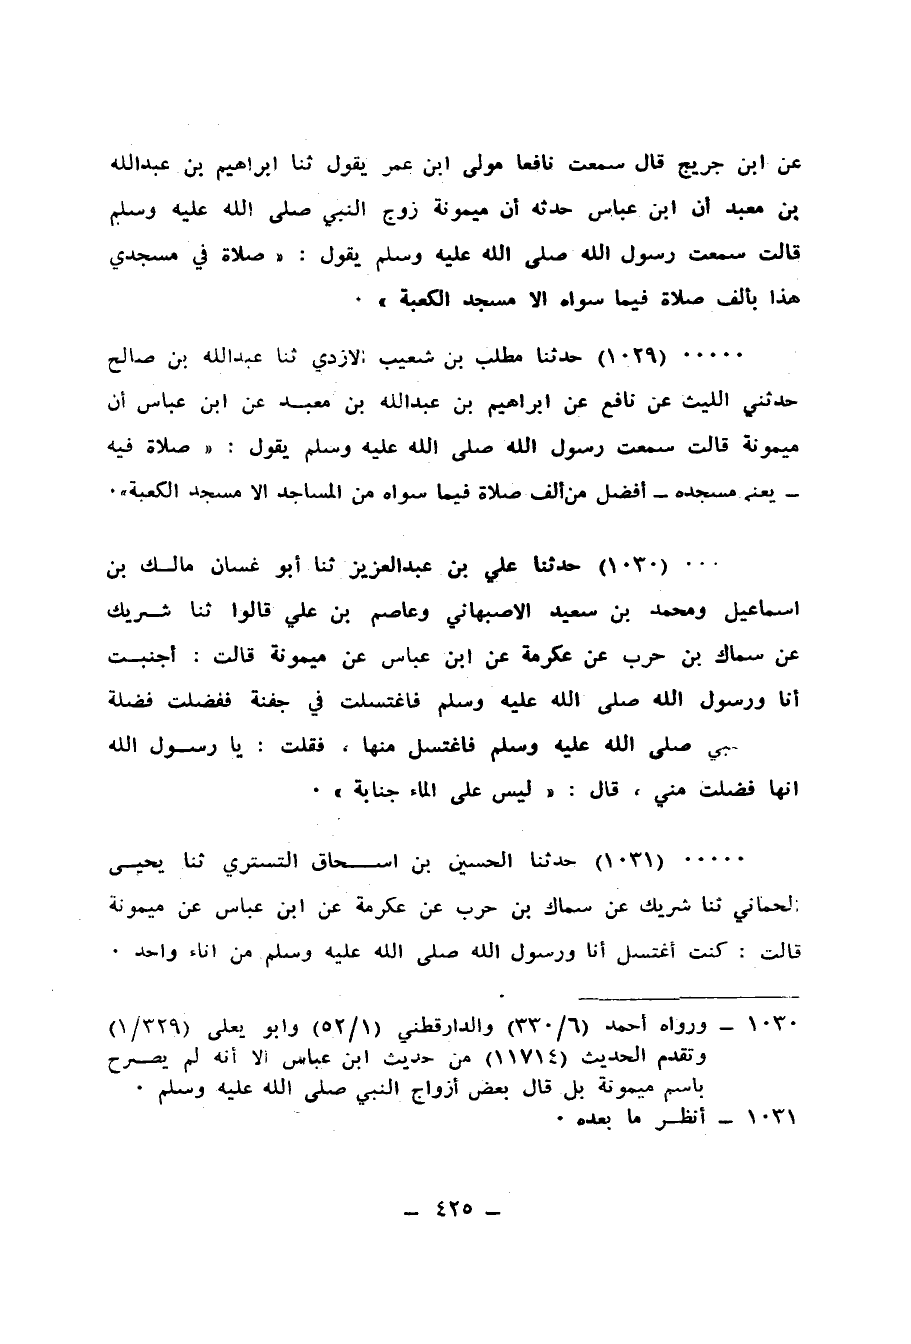 عن ابن جريج قال سمعت نافعا مولى ابن عمر يقول ثنا ابراهيم بن عبدالله
بن معبد أن ابن عباس حدثه أن ميمونة زوج النبي صلى الله عليه وسلم
قالت سمعت رسول الله صلى الله عليه وسلم يقول : « صلاة في مسجدي
هذا بألف صلاة فيما سواه الا مسجد الكعبة » ٠
٠٠٠٠٠ (١٠٢٩) حدثنا مطلب بن شعيب الازدي ثنا عبدالله بن صالح
حدثني الليث عن نافع عن ابراهيم بن عبدالله بن معبد عن ابن عباس أن
ميمونة قالت سمعت رسول الله صلى الله عليه وسلم يقول : « صلاة فيه
ــ يعني مسجده ــ أفضل من ألف صلاة فيما سواه من المساجد الا مسجد الكعبة» ٠
٠٠٠ (١٠٣٠) حدثنا علي بن عبدالعزيز ثنا أبو غسان مالك بن
اسماعيل ومحمد بن سعيد الاصبهاني وعاصم بن علي قالوا ثنا شريك
عن سماك بن حرب عن عكرمة عن ابن عباس عن ميمونة قالت : أجنبت
أنا ورسول الله صلى الله عليه وسلم فاغتسلت في جفنة ففضلت فضلة
ـبي صلى الله عليه وسلم فاغتسل منها ، فقلت : يا رسول الله
انها فضلت مني ، قال : « ليس على الماء جنابة » ٠
٠٠٠٠٠ (١٠٣١) حدثنا الحسين بن اسحاق التستري ثنا يحيى
الحماني ثنا شريك عن سماك بن حرب عن عكرمة عن ابن عباس عن ميمونة
قالت : كنت أغتسل أنا ورسول الله صلى الله عليه وسلم من اناء واحد ٠
١٠٣٠ ــ ورواه أحمد (٣٣٠/٦) والدارقطني (٥٢/١) وابو يعلى (١/٣٢٩)
وتقدم الحديث (١١٧١٤) من حديث ابن عباس الا أنه لم يصرح
باسم ميمونة بل قال بعض أزواج النبي صلى الله عليه وسلم ٠
١٠٣١ ــ أنظر ما بعده ٠
ــ ٤٢٥ ــ